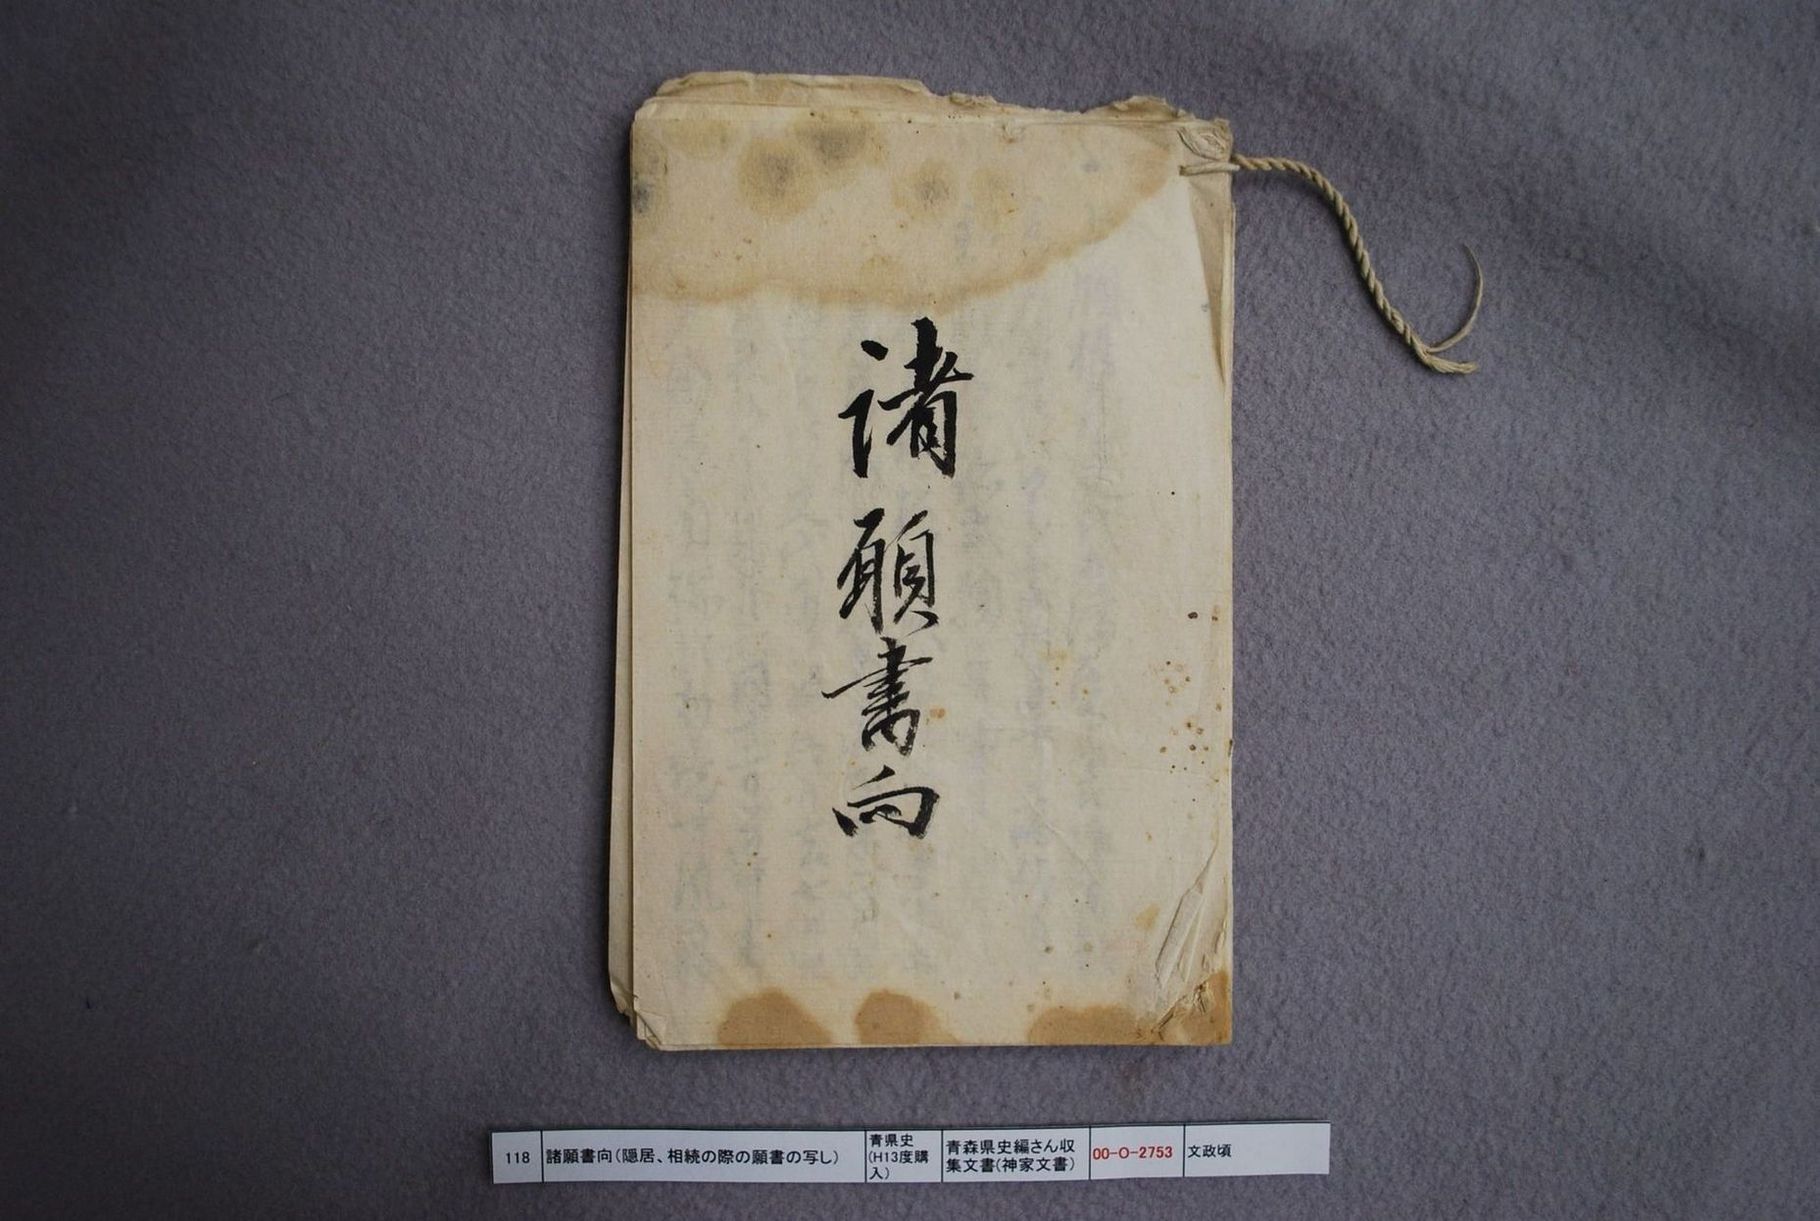 諸願書向
118
諸願書向(隠居、相続の際の願書の写し)
青県史
(H13度購
入)
青森県史編さん収
集文書(神家文書)
00-O-2753
文政頃